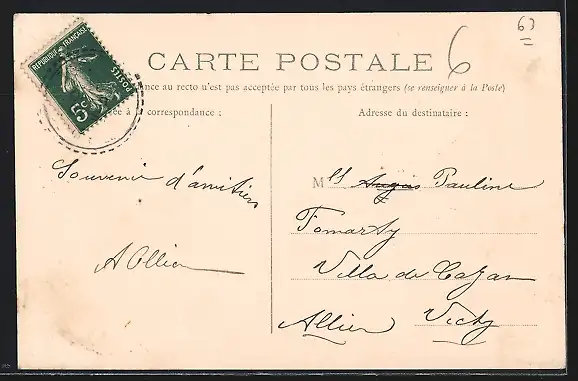 63
6
REPUBLIQUE FRANÇAISE
POSTES
5c
CARTE POSTALE
ance au recto n'est pas acceptée par tous les pays étrangers (se renseigner à la Poste)
ée à la correspondance :
Adresse du destinataire :
Souvenir d'amitiés
A Ollier
Mlle Pauline
Villa de
Allier Vichy